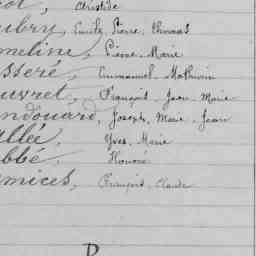 ot, Aristide
ubry, Emile Pierre Thomas
meline, Pierre Marie
sseré, Emmanuel Mathurin
uvret, François Jean Marie
ndouard, Joseph Marie Jean
allée, Yves Marie
bbé, Honoré
mices, François Claude